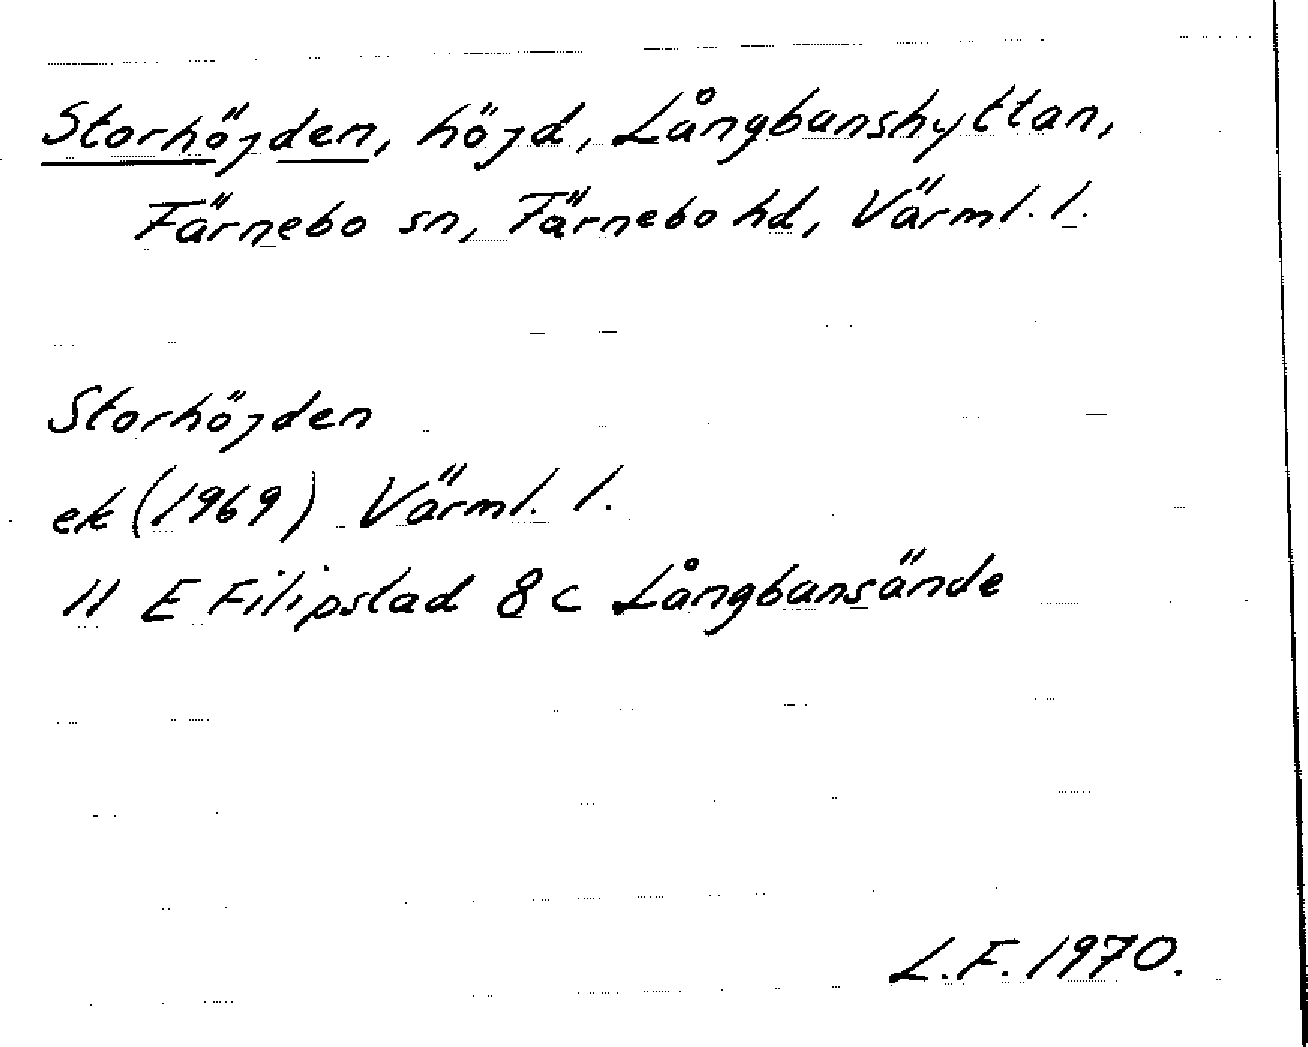 Storhöjden, höjd, Långbanshyttan,
Färnebo sn, Färnebo hd, Värml. l.
Storhöjden
ek (1969) Värml. l.
11 E Filipstad 8 c Långbansände
L.F. 1970.